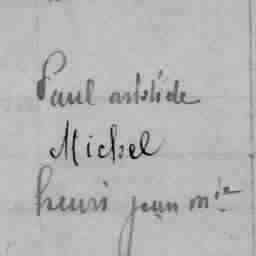 Paul aristide
Michel
henri jean m^ie